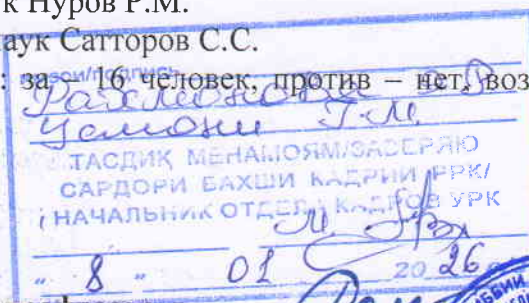 к Нуров Р.М.
наук Сатторов С.С.
: за – 16 человек, против – нет, воз
Усмони Т.М.
ТАСДИҚ МЕНАМОЯМ/ЗАВЕРЯЮ
САРДОРИ БАХШИ КАДРИИ РРК/
НАЧАЛЬНИК ОТДЕЛА КАДРОВ УРК
" 8 " 01 20 26